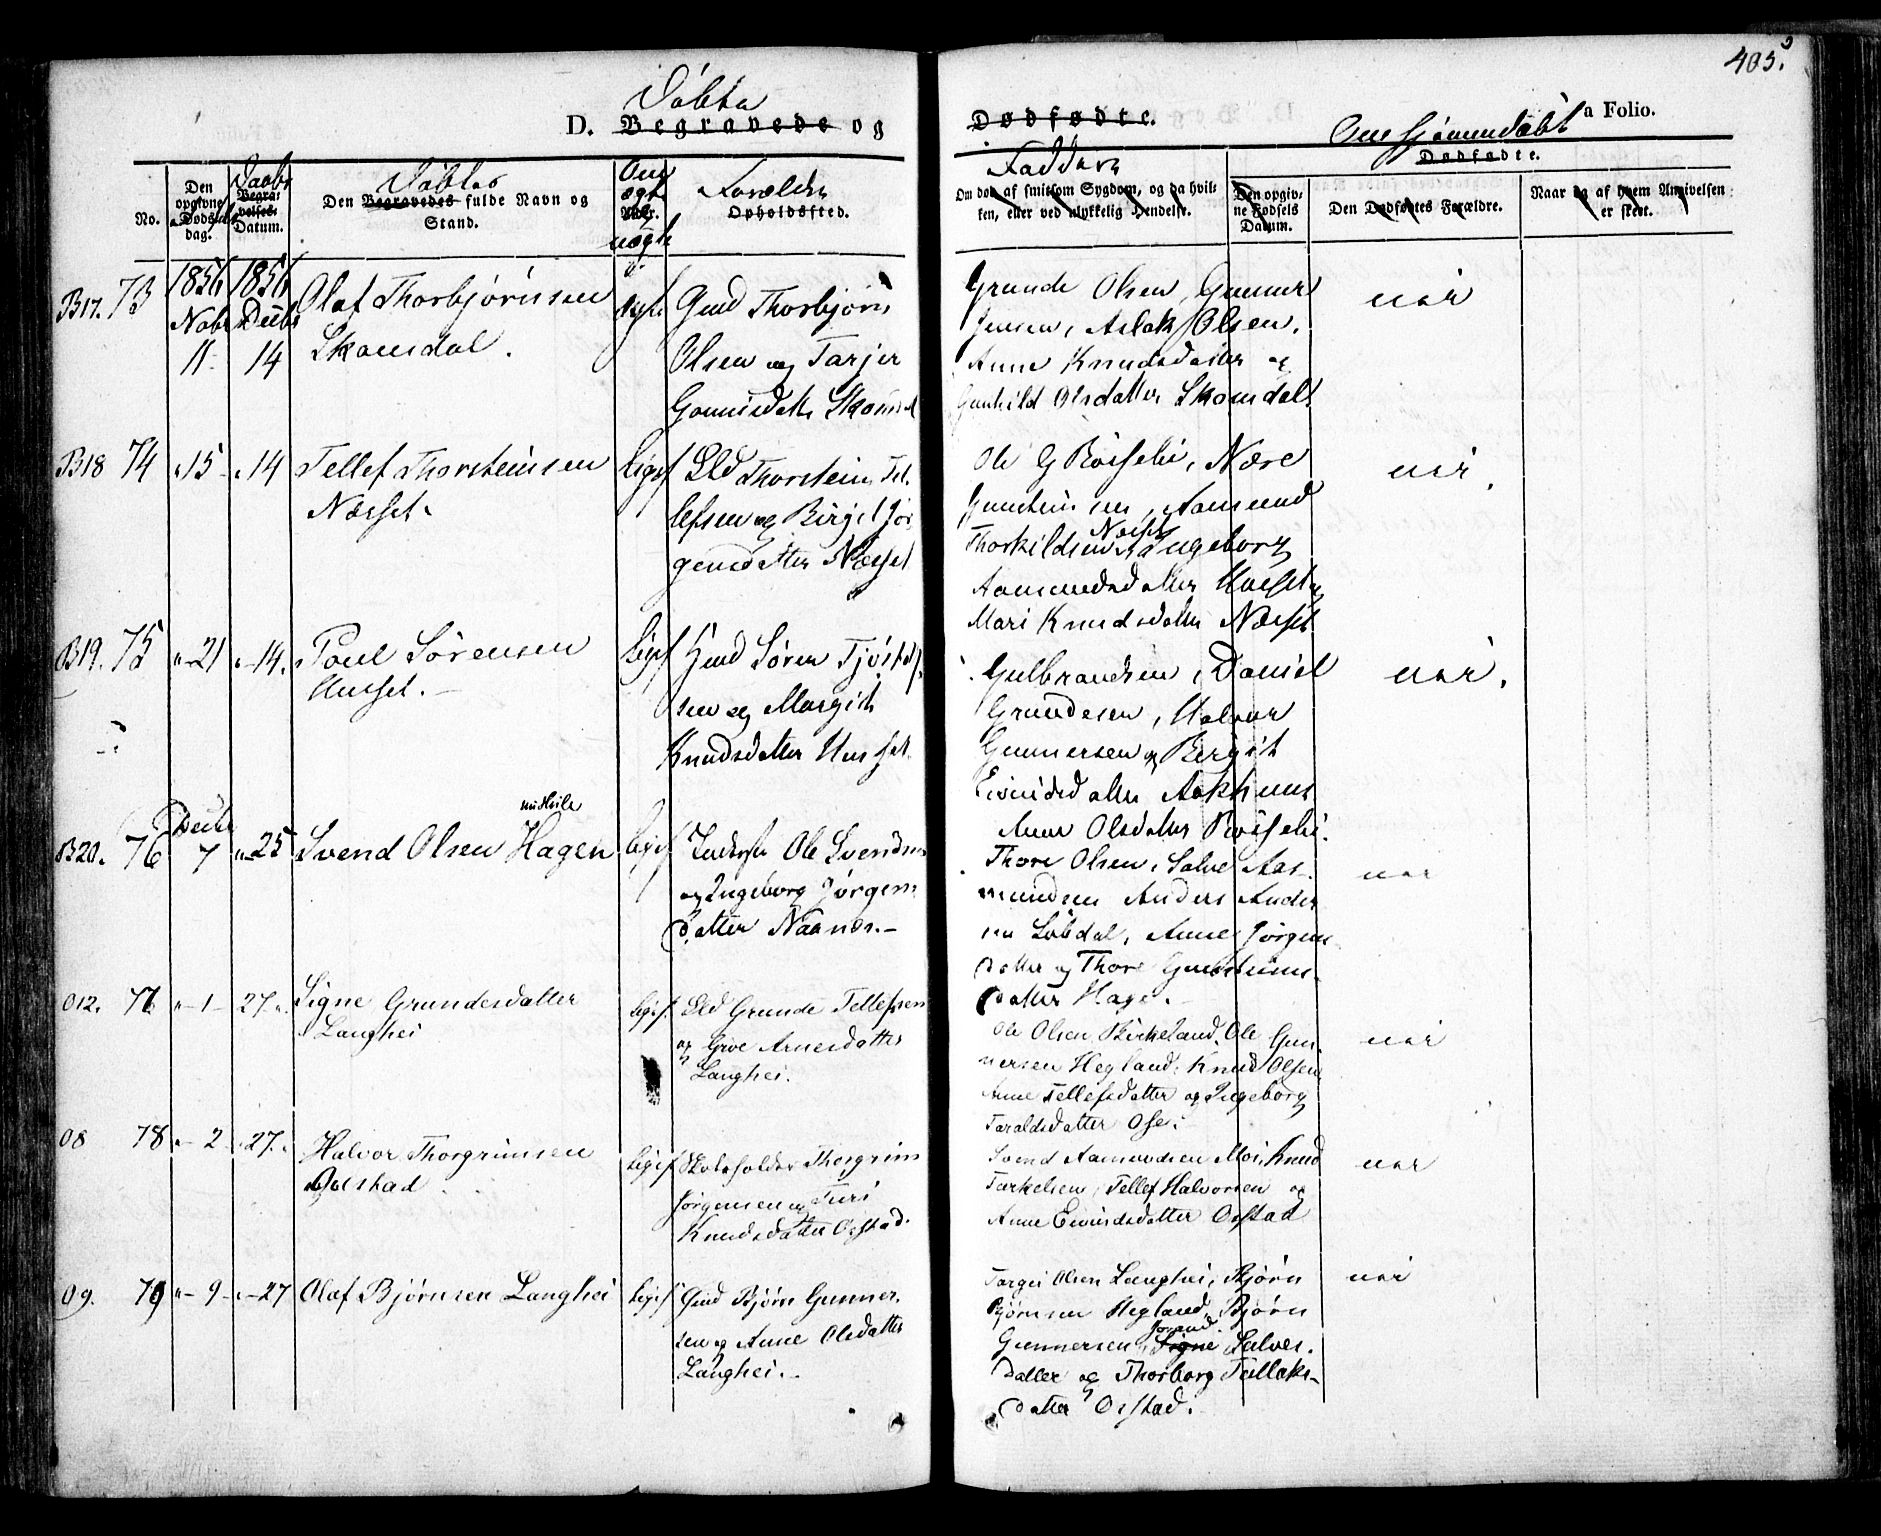 405.
Döbte
D. Begravede og Dødfødte.
a Folio.
Om hjemmedøbt
Dødfødte.
No.
Den opgivne Døds dag.
Daabs
Begravelses-Datum.
Døbtes
Den Begravedes fulde Navn og Stand.
Om ægte el. uægte
Alder.
Forældre
Opholdssted.
Faddere
Om død af smitsom Sygdom, og da hvilken, eller ved ulykkelig Hendelse.
Den opgivne Fødsels Datum.
Den Dødfødtes Forældre.
Naar og af hvem Angivelsen er skeet.
B17. 73
1856 Nobr 11
1856 Decbr 14
Olaf Thorbjørnsen
Skomedal.
ægte
Gmd Thorbjørn
Olsen og Tarjer
Gunnisdatter Skomedal
Grunde Olsen, Gunner
Jensen, Aslak Olsen,
Anne Knudsdatter og
Gunhild Olsdatter Skomedal
nei
B18 74
" 15
" 14
Tellef Thorsteinsen
Næsset.
Liges
Lld Thorstein Tel-
lefsen og Birgit Jør-
gensdatter Næsset
Ole G Røisseli, Nære
Gunsteinsen, Aamund
Thorkildsen Næsset, Ingeborg
Aamundsdatter Uvesset og
Mari Knudsdatter Næsset
nei.
B19. 75
" 21
" 14.
Poul Sørensen
Uvesset.
Ligès
Gmd Søren Tjøstelf-
sen og Margit
Knudsdatter Uvesset.
Gulbrandsen, Daniel
Grundesen, Halvor
Gunnersen og Bergit
Eivindsdatter Aakhuus
Anne Olsdatter Røisseli.
nei.
B20. 76
Decbr 7
" 25
Svend Olsen Hagen
Ligès
Inderste Ole Svendsen
og Ingeborg Jørgens-
datter Naanes.
Thore Olsen, Salve Aas-
mundsen Anders Ander-
sen Løbdal, Anne Jørgens-
datter og Thore Gunsteins-
datter Hage.
nei
O12. 77.
" 1
27.
Signe Grundesdatter
Langhei
Ligès.
Lld Grunde Tellefsen
og Groe Arnesdatter
Langhei.
Ole Olsen Birkeland, Ole Gun-
nersen Hegland, Knud Olsen,
Anne Tellefsdatter og Ingeborg
Taraldsdatter Ose.
nei
O8 78
" 2
" 27.
Halvor Thorgrimsen
Ovstad
Ligès
Skoleholder Thorgrim
Jørgensen og Turi
Knudsdatter Ovstad.
Svend Aamundsen Moi, Knud
Tarkelsen, Tellef Halvorsen og
Anne Eivindsdatter Ovstad
nei
O9. 79
" 9
" 27
Olaf Bjørnsen Langhei
Ligès
Gmd Bjørn Gunner-
sen og Anne Olsdatter
Langhei.
Torgei Olsen Langhei, Bjørn
Bjørnsen Hegland, Bjørn
Gunnersen, Signe Jorand Salves-
datter og Thorborg Tellaks-
datter Ovstad.
nei